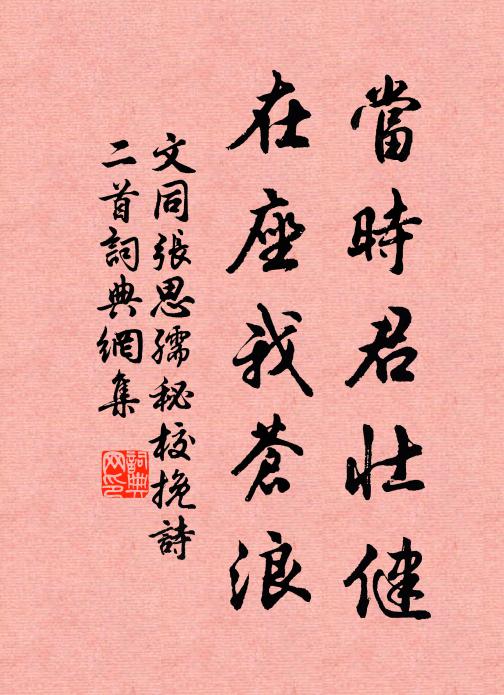 當時君壯健
在座我蒼浪
文同張思孺秘校挽詩
二首詞典網集
詞典
网印